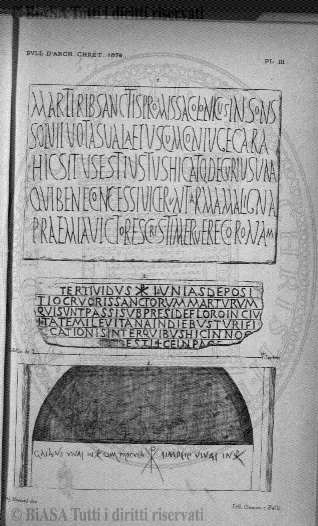 © BiASA Tutti i diritti riservati
BULL D'ARCH. CHRÉT. 1876
PL. III
1.
MARTIRIBSANCTISPROMISSACOLONICUSINSONS
SOLVITVOTASUALAETUSCUMCONIUGECARA
HICSITUSESTIUSTUSHICATQ DECURIUSUNA
QUIBENECONFESSIVICERUNTARMAMALIGNA
PRAEMIAVICTORESCRISTIMERUERECORONAM
2.
TERTIVIDVS IVNIASDEPOSI
TIOCRVORISSANCTORVMMARTVRVM
QVISVNTPASSISVBPRESIDEFLOROINCIVI
TATEMILEVITANAINDIEBVSTVRIFI
CATIONISINTERQVIBVSHICINNOC
ESTI
CEINPACE
VIVAS IN
SIMPLICI VIVAS IN
© BiASA Tutti i diritti riservati